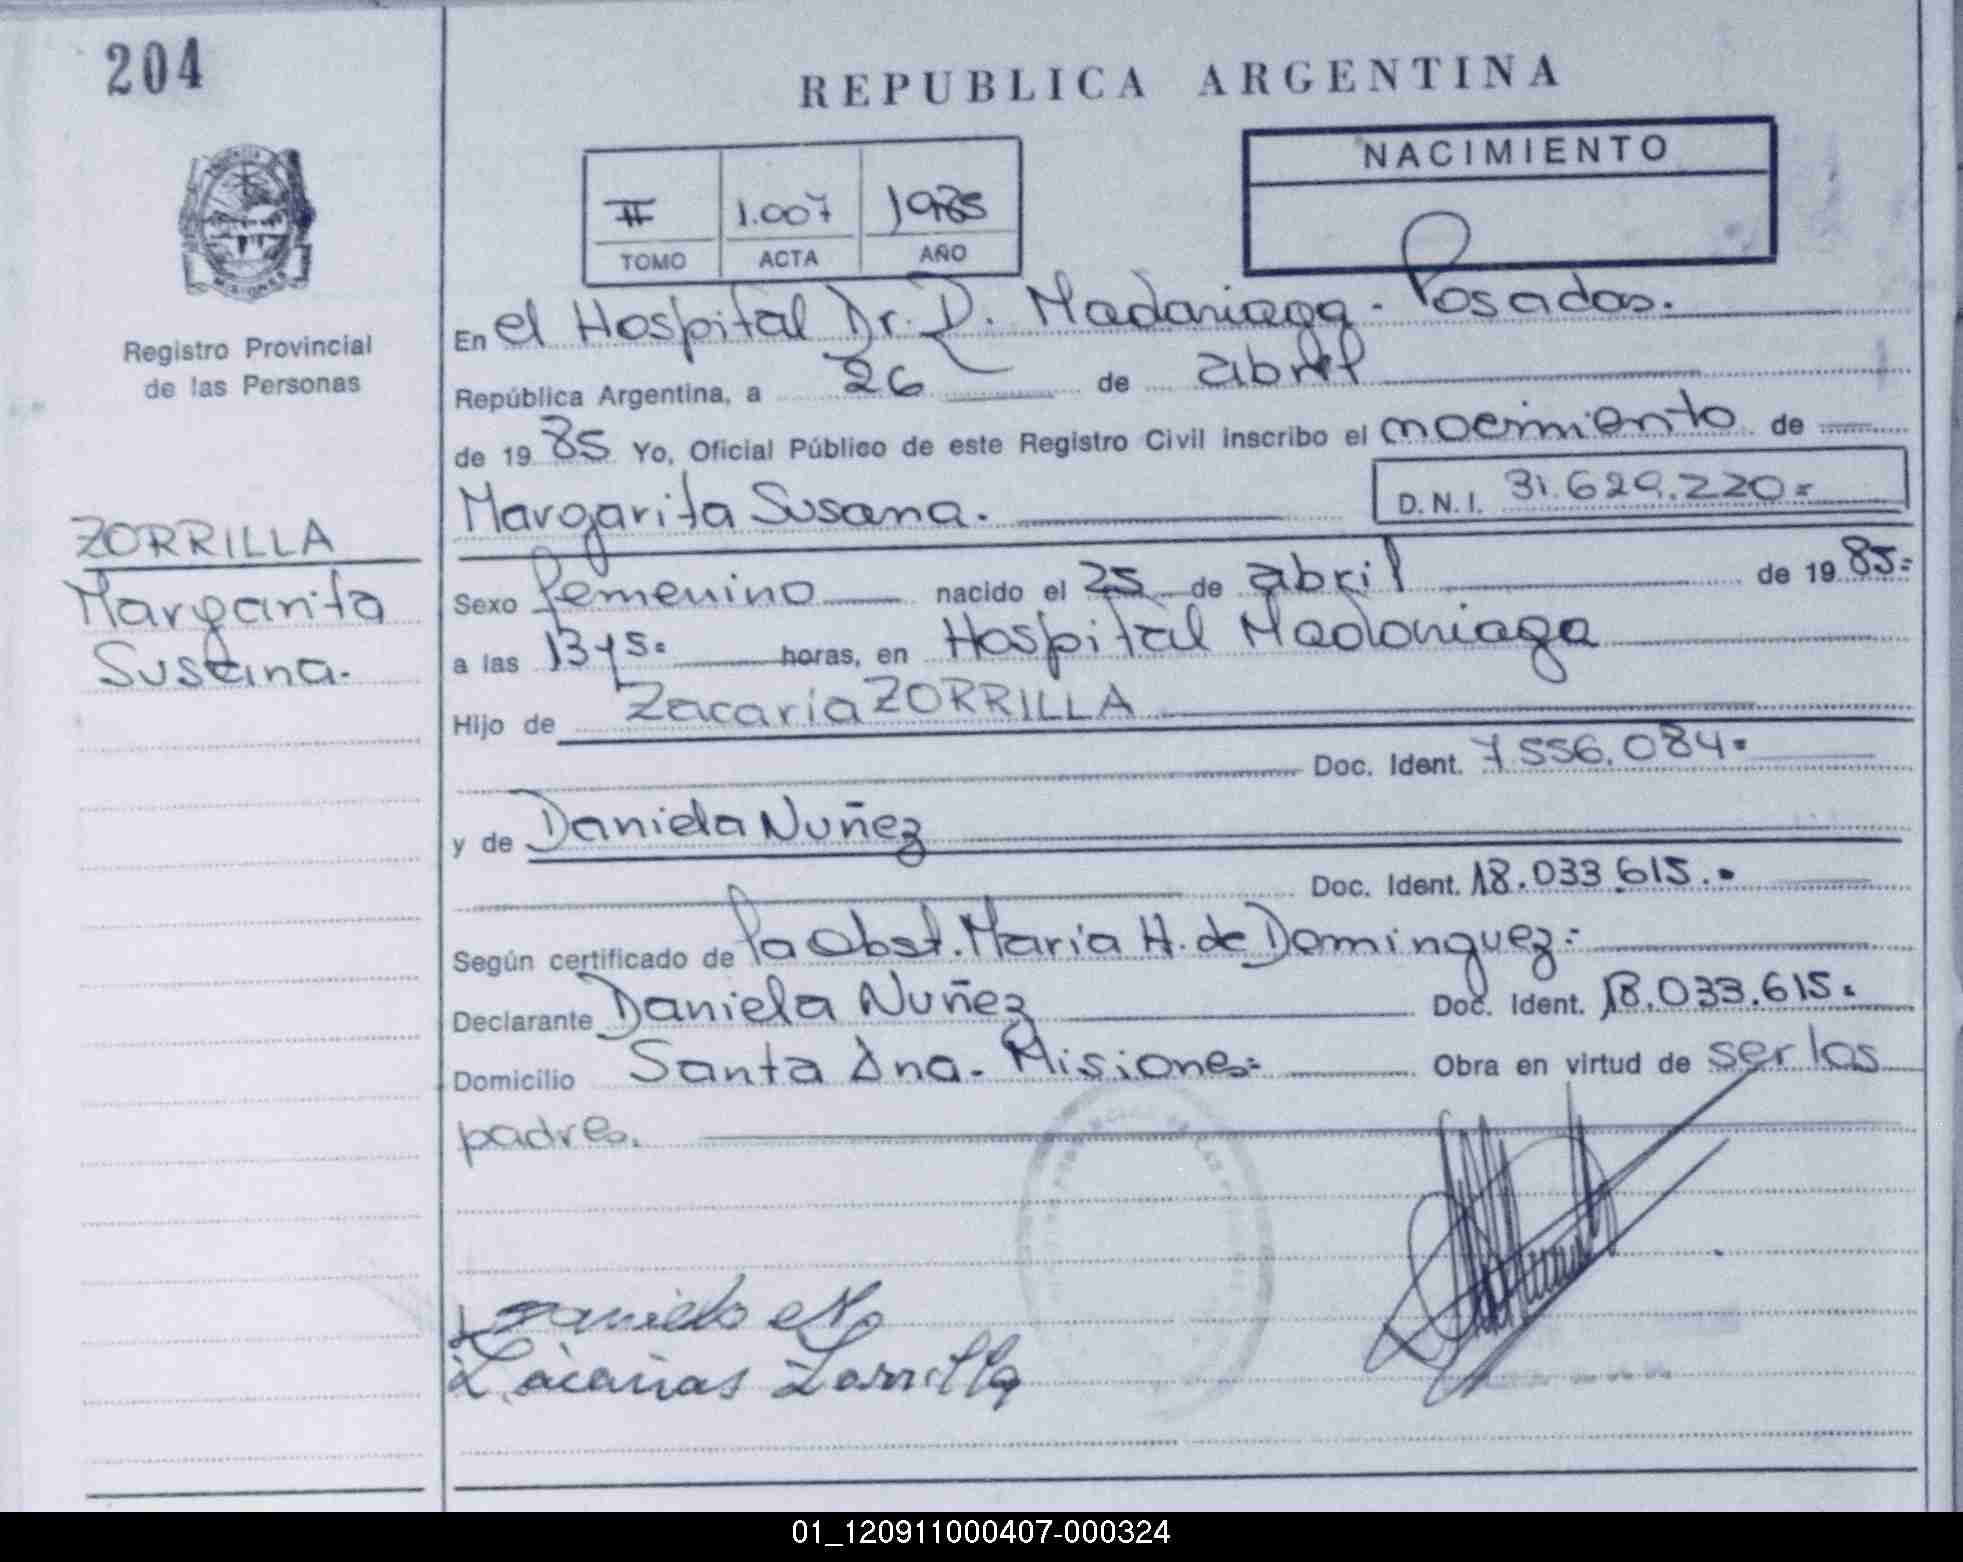 204
REPUBLICA ARGENTINA
NACIMIENTO
II 1.007 1985
TOMO ACTA AÑO
Registro Provincial
de las Personas
ZORRILLA
Margarita
Susana.
En el Hospital Dr. D. Madariaga - Posadas.
República Argentina, a 26 de abril
de 19 85 Yo, Oficial Público de este Registro Civil inscribo el nacimiento de
Margarita Susana. D.N.I. 31.629.220=
Sexo femenino nacido el 25 de abril de 19 85=
a las horas, en Hospital Madariaga
Hijo de Zacaria ZORRILLA
Doc. Ident. 7.556.084=
y de Daniela Nuñez
Doc. Ident. 18.033.615.=
Según certificado de la Obst. Maria H. de Dominguez=
Declarante Daniela Nuñez Doc. Ident. 18.033.615=
Domicilio Santa Ana - Misiones= Obra en virtud de ser los
padres.
Daniela N
Zacarias Zorrilla
01_120911000407-000324